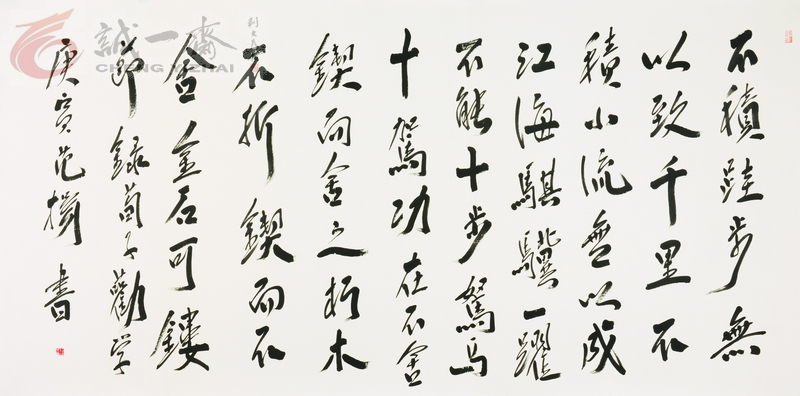 不積跬步無
以致千里不
積小流無以成
江海騏驥一躍
不能十步駑馬
十駕功在不舍
鍥而舍之朽木
不折鍥而不
舍金石可鏤
節錄荀子勸學
庚寅范書
誠一齋
CHENG YIZHAI